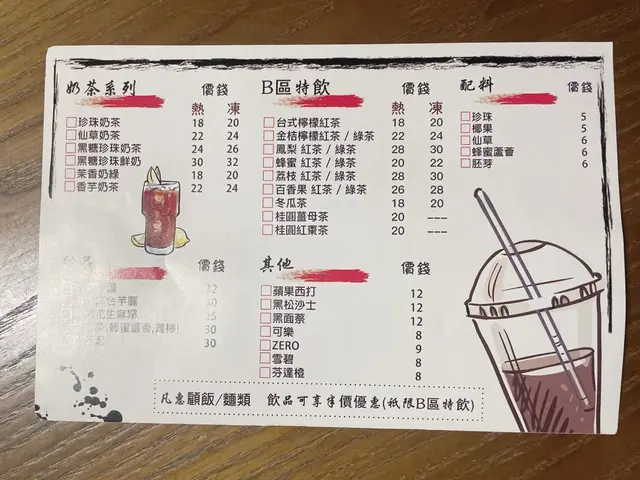 奶茶系列 價錢
熱 凍
珍珠奶茶 18 20
仙草奶茶 22 24
黑糖珍珠奶茶 24 26
黑糖珍珠鮮奶 30 32
茉香奶綠 18 20
香芋奶茶 22 24
B區特飲 價錢
熱 凍
台式檸檬紅茶 18 20
金桔檸檬紅茶 / 綠茶 22 24
鳳梨 紅茶 / 綠茶 28 30
蜂蜜 紅茶 / 綠茶 20 22
荔枝 紅茶 / 綠茶 28 30
百香果 紅茶 / 綠茶 26 28
冬瓜茶 18 20
桂圓薑母茶 20 ---
桂圓紅棗茶 20 ---
配料 價錢
珍珠 5
椰果 5
仙草 6
蜂蜜蘆薈 6
胚芽 6
價錢
32
芋圓 30
花生麻糬 25
(蜂蜜蘆薈,青檸) 30
30
其他 價錢
蘋果西打 12
黑松沙士 12
黑面蔡 12
可樂 8
ZERO 9
雪碧 8
芬達橙 8
凡惠顧飯/麵類 飲品可享半價優惠(祇限B區特飲)